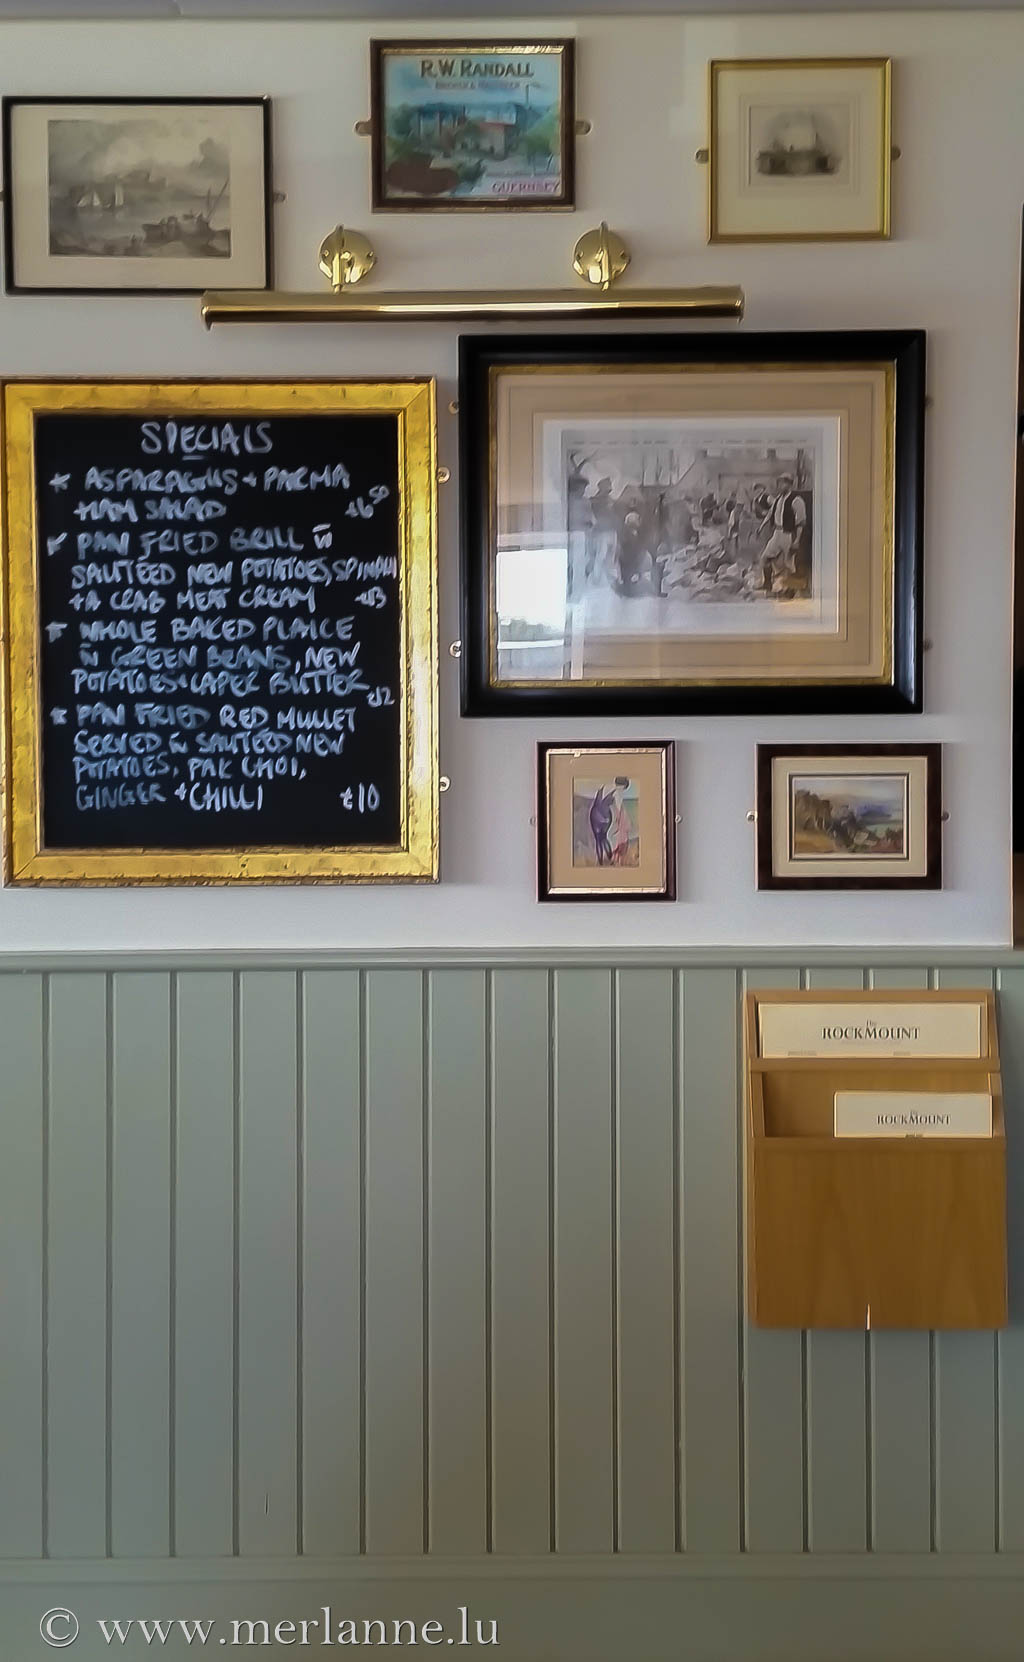 R.W. RANDALL
GUERNSEY
SPECIALS
* ASPARAGUS + PARMA
HAM SALAD £6.50
* PAN FRIED BRILL w̄
SAUTÉED NEW POTATOES, SPINACH
+ A CRAB MEAT CREAM £13
* WHOLE BAKED PLAICE
w̄ GREEN BEANS, NEW
POTATOES + CAPER BUTTER £12
* PAN FRIED RED MULLET
SERVED w̄ SAUTEED NEW
POTATOES, PAK CHOI,
GINGER + CHILLI £10
The
ROCKMOUNT
The
ROCKMOUNT
© www.merlanne.lu